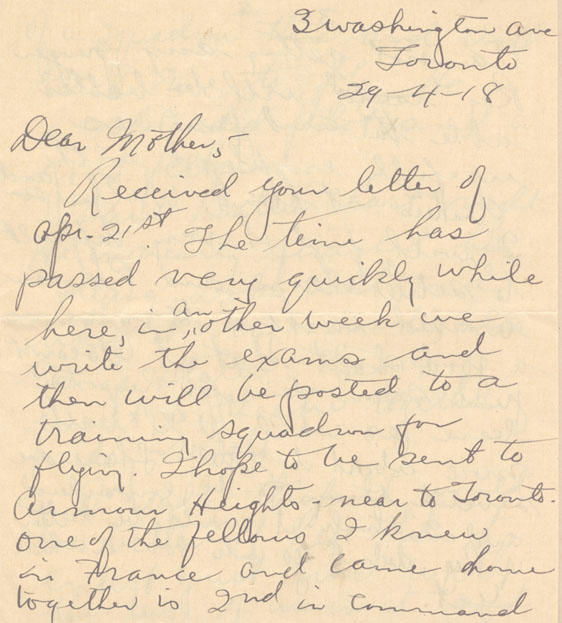 3 Washington Ave
Toronto
29-4-18
Dear Mother,-
Received your letter of
Apr. 21st. The time has
passed very quickly while
here, in an other week we
write the exams and
then will be posted to a
training squadron for
flying. I hope to be sent to
Armour Heights - near to Toronto.
One of the fellows I knew
in France and came home
together is 2nd in command